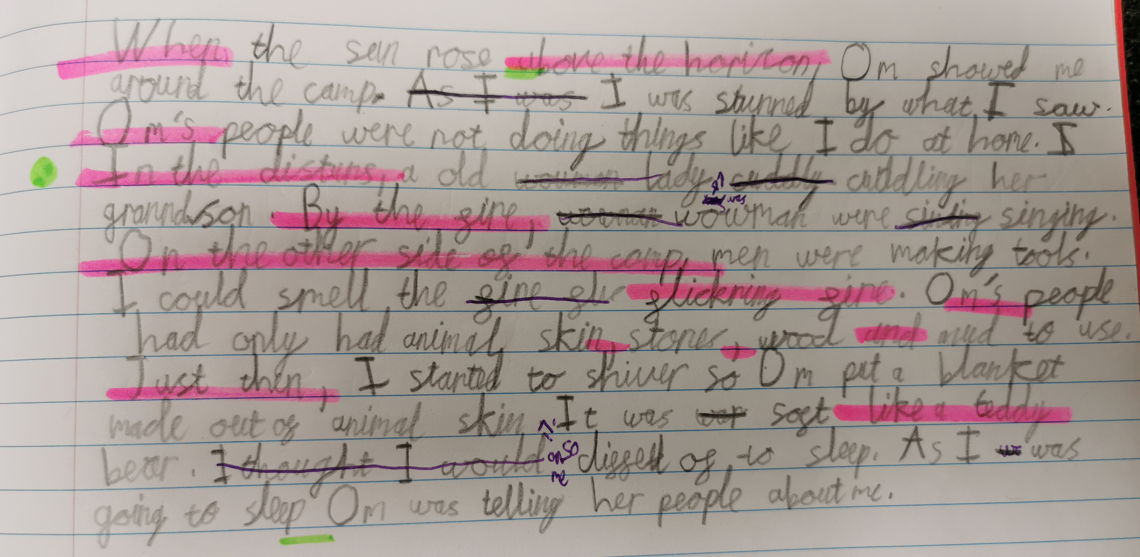 When the sun rose above the horizon, Om showed me
around the camp. As I was I was stunned by what I saw.
Om's people were not doing things like I do at home. I
In the distuns, a old wouman lady was cuddling her
granndson. By the gire, wowman were singing.
On the other side og the camp, men were making tools.
I could smell the gire glic glickering gire. Om's people
had only had animal skin, stones, wood and mud to use.
Just then, I started to shiver so Om put a blanket
made out og animal skin on me. It was sogt like a teddy
bear. I thought I would so I digged og to sleep. As I was
going to sleep Om was telling her people about me.